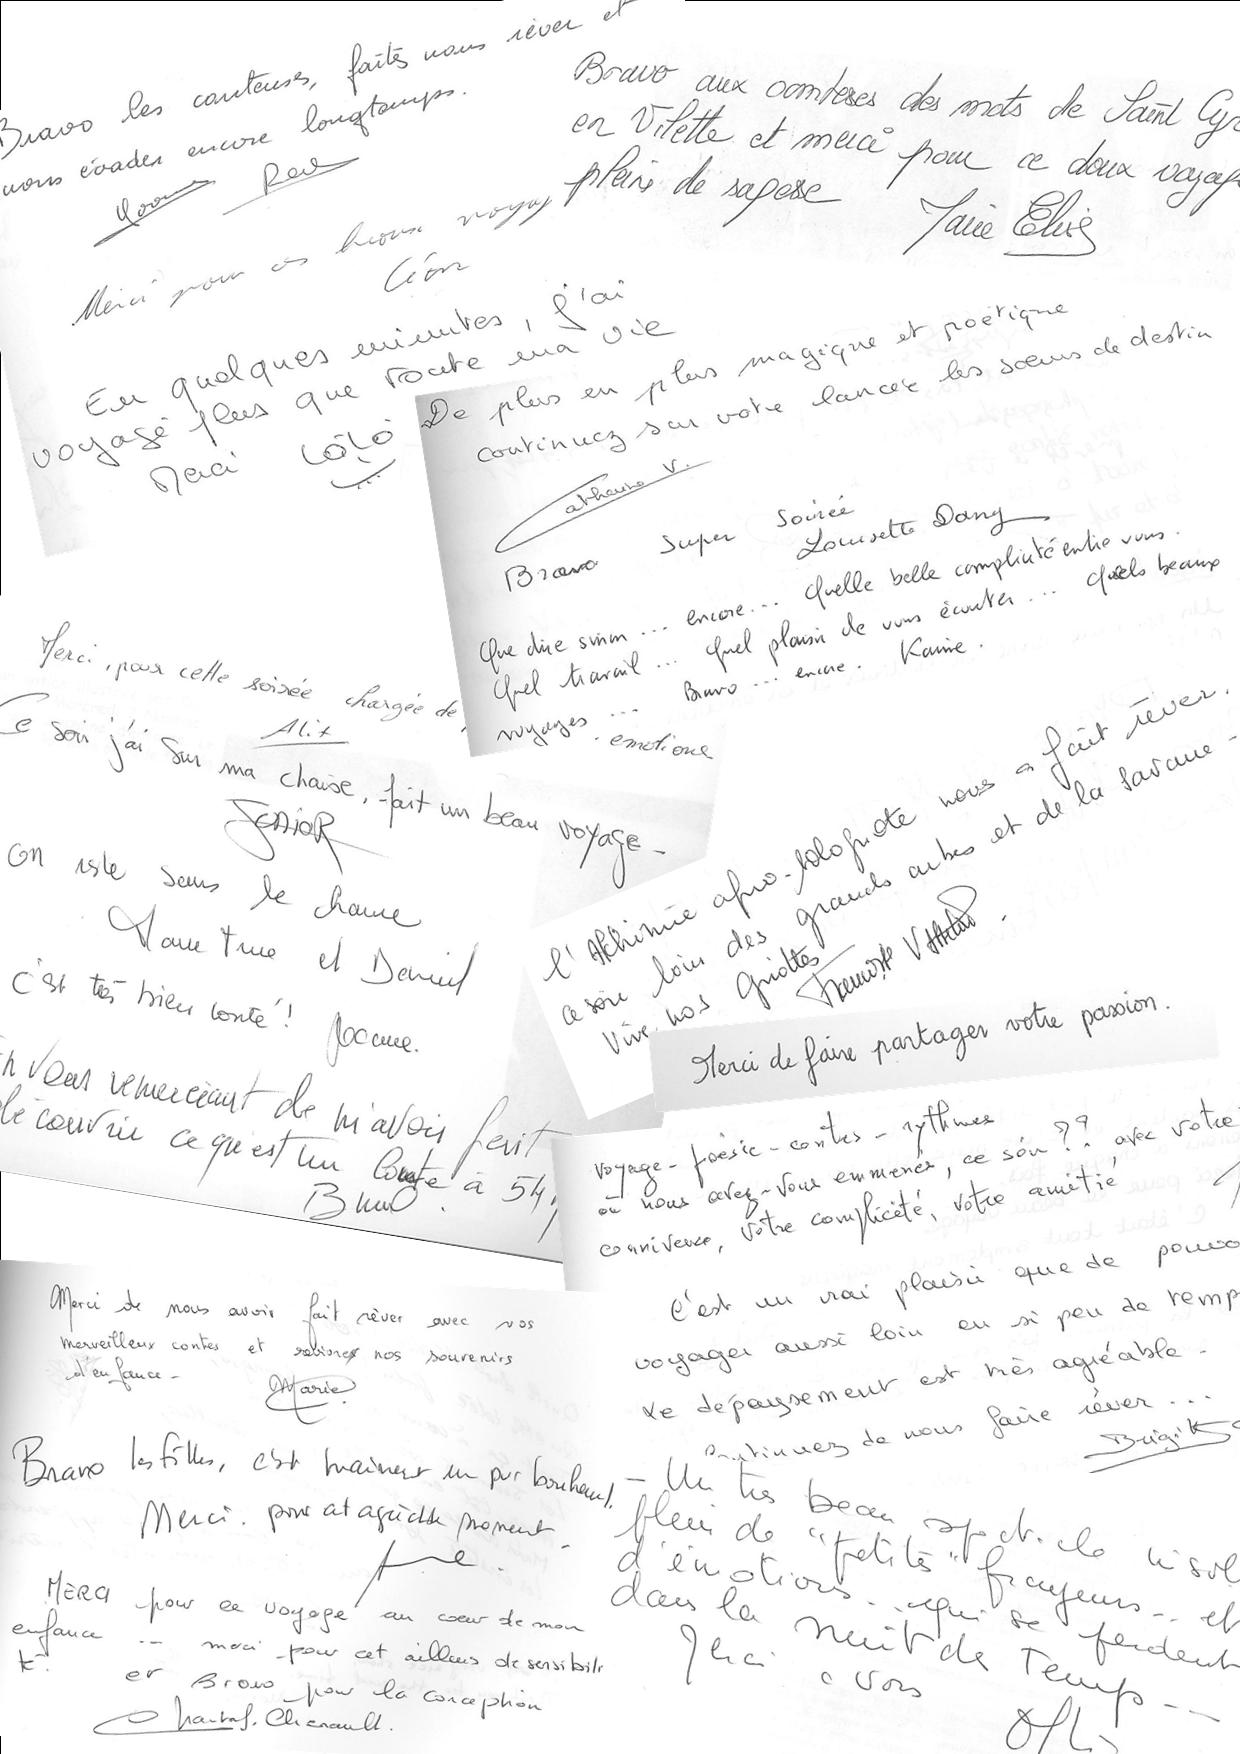 Bravo les conteuses, faites nous rêver et
nous évader encore longtemps.
Bravo aux conteuses des mots de Saint Cyr
en Vilette et merci pour ce doux voyage
plein de sagesse
Marie Elise
Merci pour ces beaux voyag
En quelques minutes, j'ai
voyagé plus que toute ma vie
Merci Lôlô
De plus en plus magique et poétique
continuez sur votre lancée les sœurs de destin
Catherine V.
Bravo super soirée
Louisette Dany
Que dire sinon ... encore ... Quelle belle complicité entre vous.
Quel travail ... Quel plaisir de vous écouter ... Quels beaux
voyages ... Bravo ... encore. Karine.
Merci, pour cette soirée chargée de
emotions
Alix
Ce soir j'ai sur ma chaise, fait un beau voyage -
On reste sous le charme
et Daniel
c'est très bien conté!
l'Alchimie afro-hologuote nous a fait rêver.
ce soir loin des grands arbres et de la savane -
Vive nos Griottes
Merci de faire partager votre passion.
En vous remerciant de m'avoir fait
découvrir ce qu'est un Conte à 54
Bruno.
voyage - poésie - contes - rythmes
où nous avez-vous emmenés, ce soir ??, avec votre
connivence, votre complicité, votre amitié
C'est un vrai plaisir que de pouvo
voyager aussi loin en si peu de temps
Le dépaysement est très agréable -
Continuez de nous faire rêver ...
Brigitte
Merci de nous avoir fait rêver avec vos
merveilleux contes et nos souvenirs
d'enfance -
Marie
Bravo les filles, c'est vraiment un pur bonheur.
Merci. pour cet agréable moment.
Merci pour ce voyage au cœur de mon
enfance ... merci pour cet ailleurs de sensibili
té.
et Bravo pour la conception
Chantal. Chenault.
- Un très beau spectacle
plein de "petites" frayeurs .. et
d'émotions .. qui se perdent
dans la Nuit de Temps --
Merci a vous